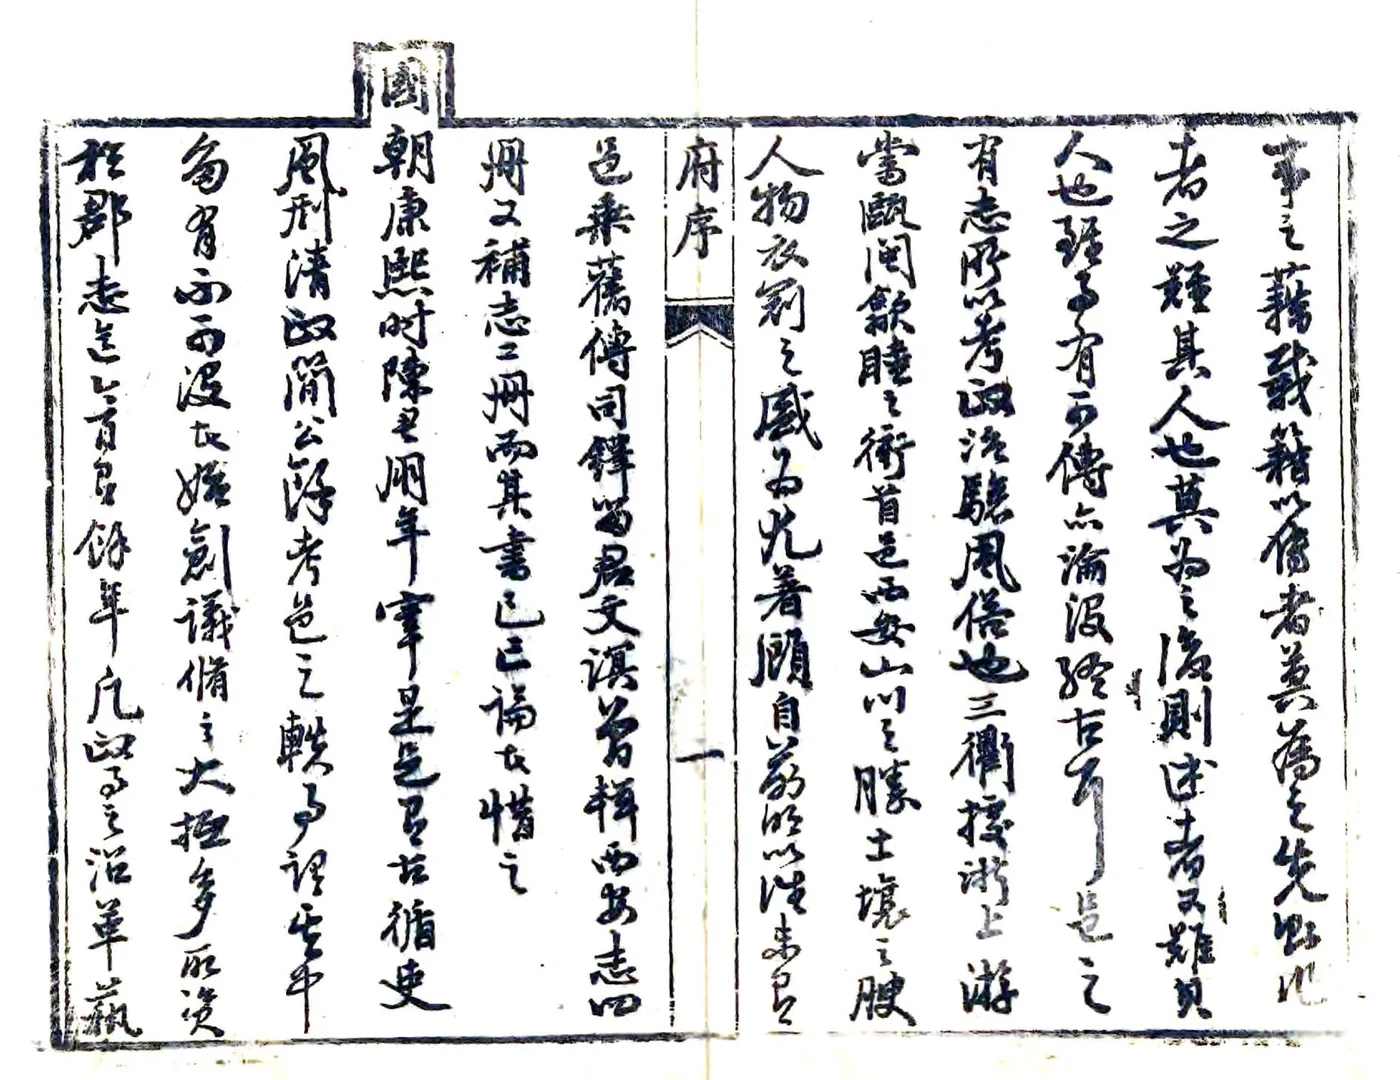 事之藉載籍以傳者莫為之先則作
者之難其人也莫為之後則述者又難其
人也雖事有可傳亦淪沒終古耳邑之
有志所以考政治驗風俗也三衢據浙上游
當甌閩歙睦之衝首邑西安山川之勝土壤之腴
人物衣冠之盛為尤著顧自前明以往未有
府序
一
邑乘舊傳司鐸留君文溟曾輯西安志四
冊又補志二冊而其書已亡論者惜之
國
朝康熙時陳君鵬年宰是邑有古循吏
風刑清政簡公餘考邑之軼事謂其中
多有不可沒者始創議脩之大抵多取資
於郡志迄今百有餘年凡政事之沿革藝